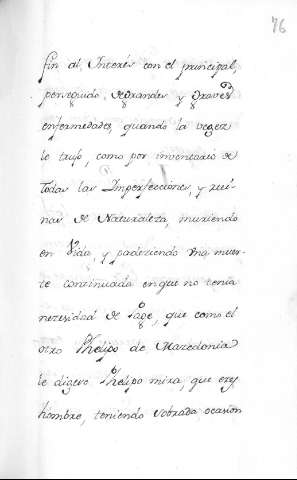 76
fin al Interés con el principal,
perseguido, de grandes y Graves
enfermedades, quando la vegez
le trujo, como por inventario de
todas las Imperfecciones, y rui-
nas de Naturaleza, muriendo
en Vida, y padeziendo una muer-
te continuada en que no tenia
nezesidad de Page, que como el
otro Phelipo de Mazedonia
le digere Phelipo mira, que eres
hombre, teniendo sobrada ocasion